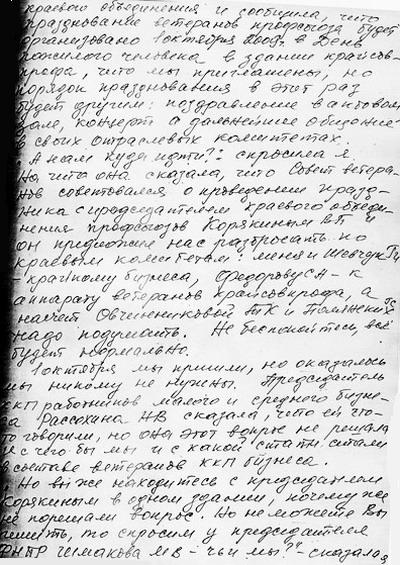 краевого объединения и сообщила, что
празднование ветеранов профсоюза будет
организовано 1 октября 2009г. в День
пожилого человека в здании крайсов-
профа, что мы приглашены, но
порядок празднования в этот раз
будет другим: поздравление в актовом
зале, концерт а дальнейшее общание
в своих отраслевых комитетах.
А нам куда идти?: спросила я.
На что она сказала, что Совет ветера-
нов советовался о проведении празд-
ника с председателем краевого объеди-
нения профсоюзов Корякиным ВП и
он предложил нас разбросать по
краевым комитетам: меня и Шевчук
крайкому бизнеса, Федоровус А - к
аппарату ветеранов крайсовпрофа, а
насчет Овчинниковой ТК и
надо подумать. Не беспокойтесь, всё
будет нормально.
1 октября мы пришли, но оказалось
мы никому не нужны. Председатель
ккп работников малого и среднего бизне-
са Рассохина НВ сказала, что ей что-
то говорили, но она этот вопрос не решала
и с чего бы мы и с какой статьи стали
в составе ветеранов ккп бизнеса.
Но вы же находитесь с председателем
Корякиным в одном здании, почему же
не порешали вопрос. Но не можете Вы
решить, то спросим у председателя
ФНПР Шмакова МВ - чьи мы?" - сказала я